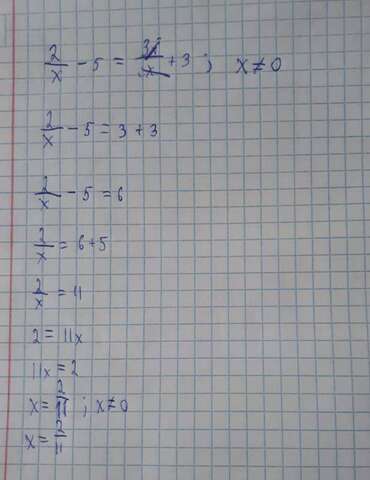 2/x - 5 = 3x/x + 3 ; x ≠ 0
2/x - 5 = 3 + 3
2/x - 5 = 6
2/x = 6 + 5
2/x = 11
2 = 11x
11x = 2
x = 2/11 ; x ≠ 0
x = 2/11